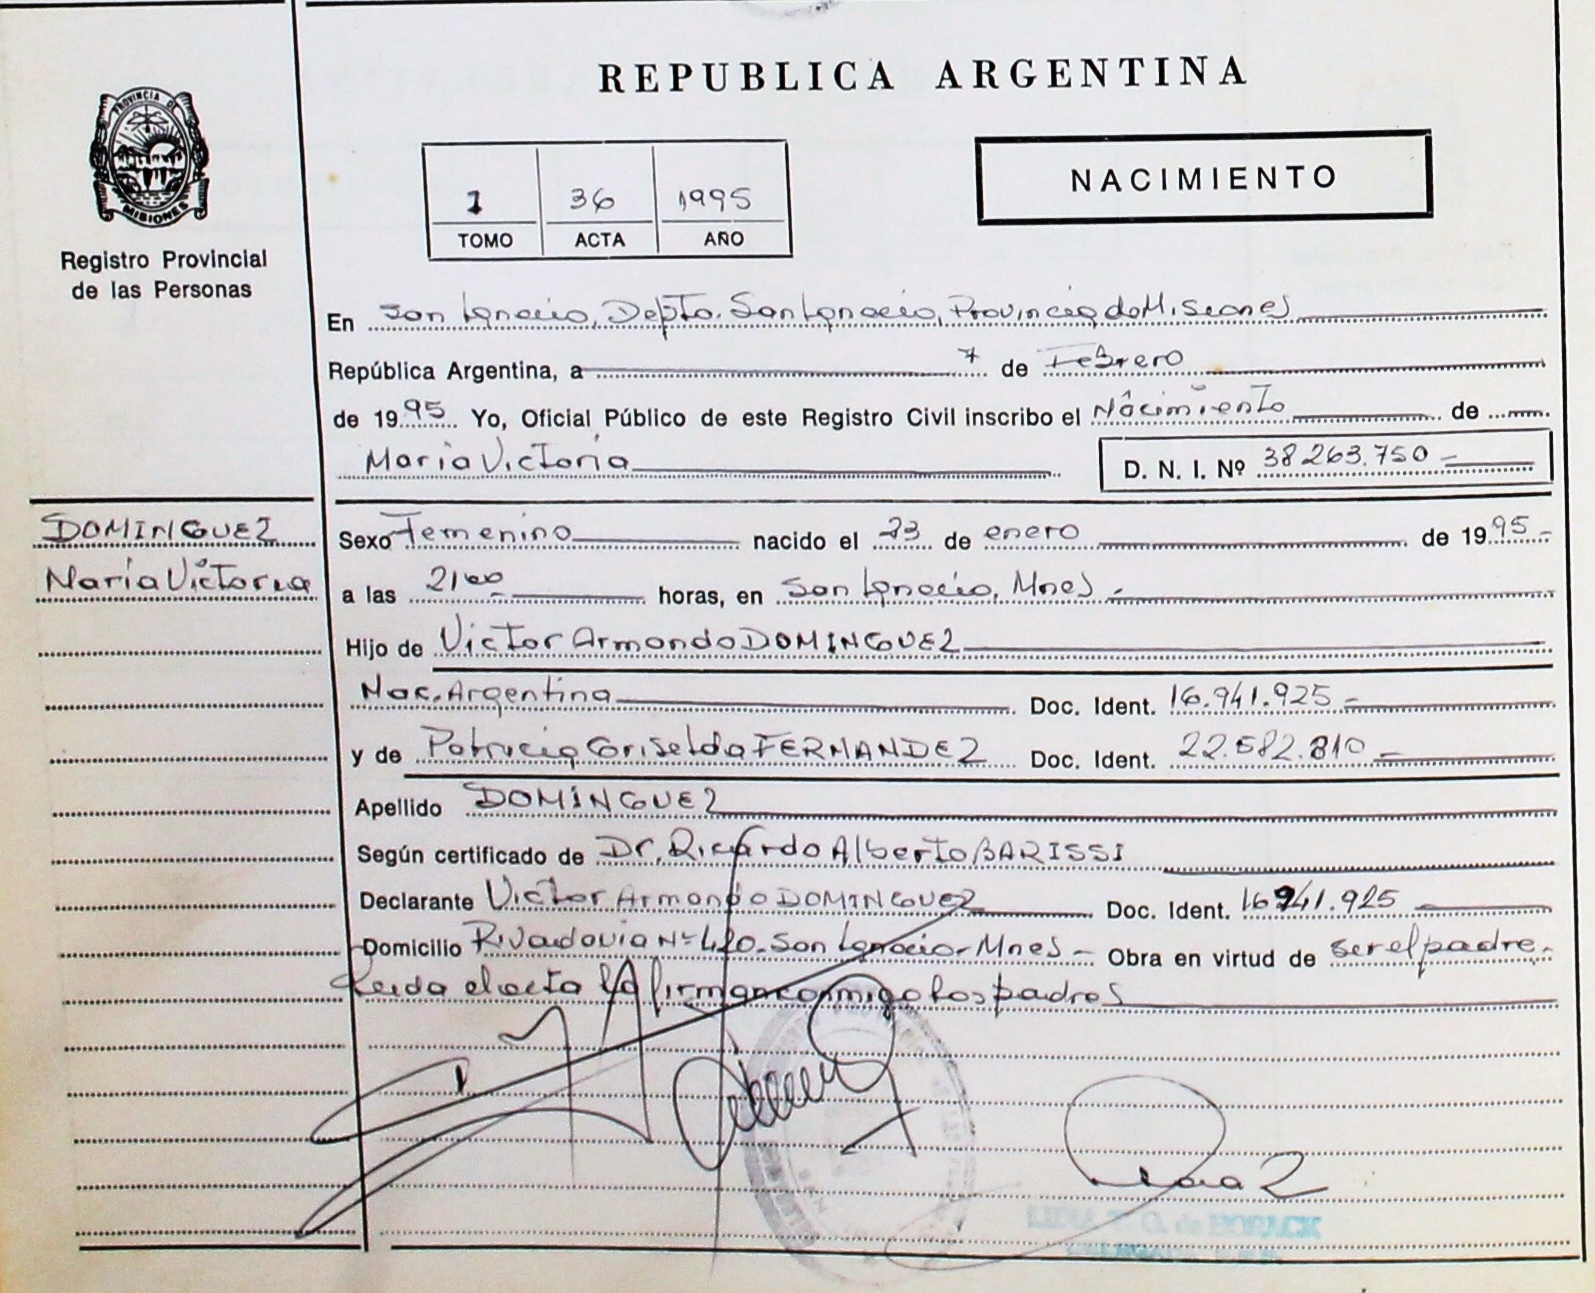 REPUBLICA ARGENTINA
PROVINCIA DE
MISIONES
Registro Provincial
de las Personas
1 36 1995
TOMO ACTA AÑO
NACIMIENTO
En San Ignacio, Depto. San Ignacio, Provincia de Misiones
República Argentina, a 7 de Febrero
de 1995 Yo, Oficial Público de este Registro Civil inscribo el Nacimiento de
Maria Victoria D. N. I. Nº 38263.750
DOMINGUEZ
Maria Victoria
Sexo Femenino nacido el 23 de enero de 1995-
a las 21 00 horas, en San Ignacio, Mnes.
Hijo de Victor Armando DOMINGUEZ
Nac. Argentina Doc. Ident. 16.941.925-
y de Patricia Griselda FERNANDEZ Doc. Ident. 22.582.810-
Apellido DOMINGUEZ
Según certificado de Dr. Ricardo Alberto BARISSI
Declarante Victor Armando DOMINGUEZ Doc. Ident. 16941.925
Domicilio Rivadavia Nº 420- San Ignacio- Mnes- Obra en virtud de ser el padre.
Leida el acta la firman conmigo los padres
de HORACK